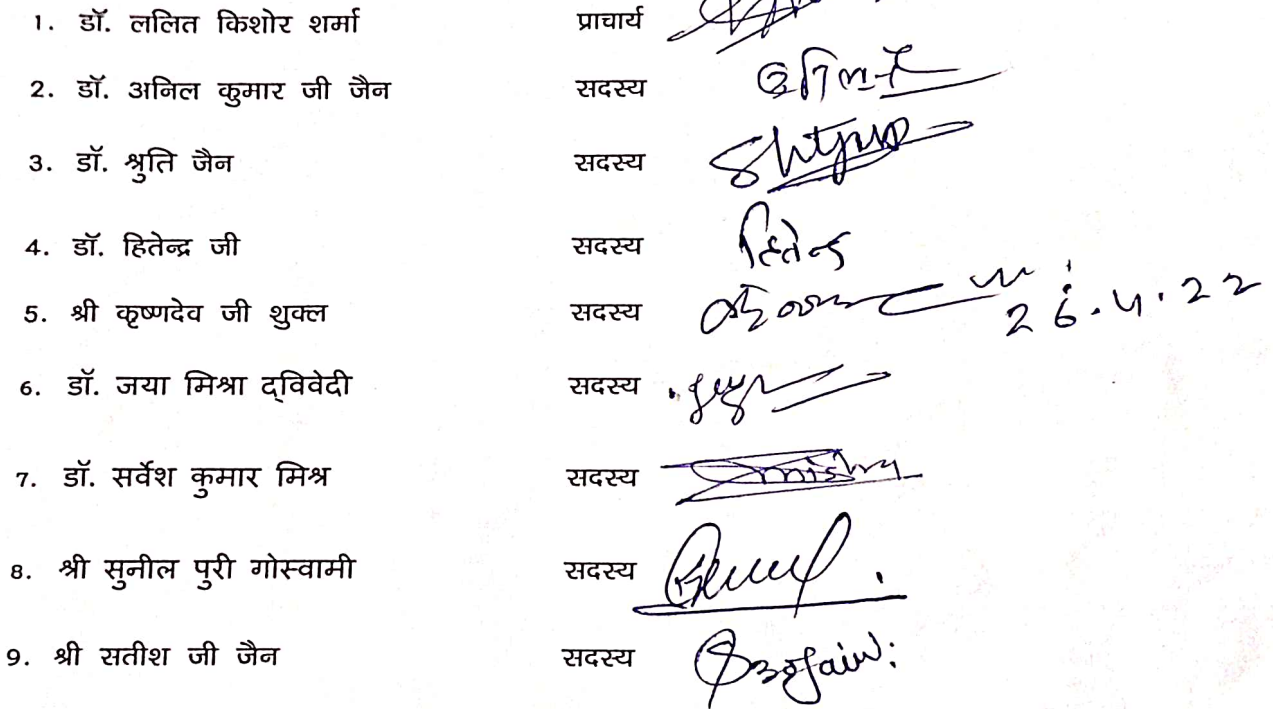 1. डॉ. ललित किशोर शर्मा प्राचार्य
2. डॉ. अनिल कुमार जी जैन सदस्य
3. डॉ. श्रुति जैन सदस्य
4. डॉ. हितेन्द्र जी सदस्य हितेन्द्र
5. श्री कृष्णदेव जी शुक्ल सदस्य 26.4.22
6. डॉ. जया मिश्रा द्‌विवेदी सदस्य
7. डॉ. सर्वेश कुमार मिश्र सदस्य
8. श्री सुनील पुरी गोस्वामी सदस्य
9. श्री सतीश जी जैन सदस्य